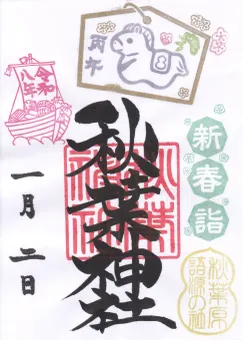 丙午
令和
八年
新春詣
秋葉神社
秋葉
神社
一月二日
秋葉原
語源の祖